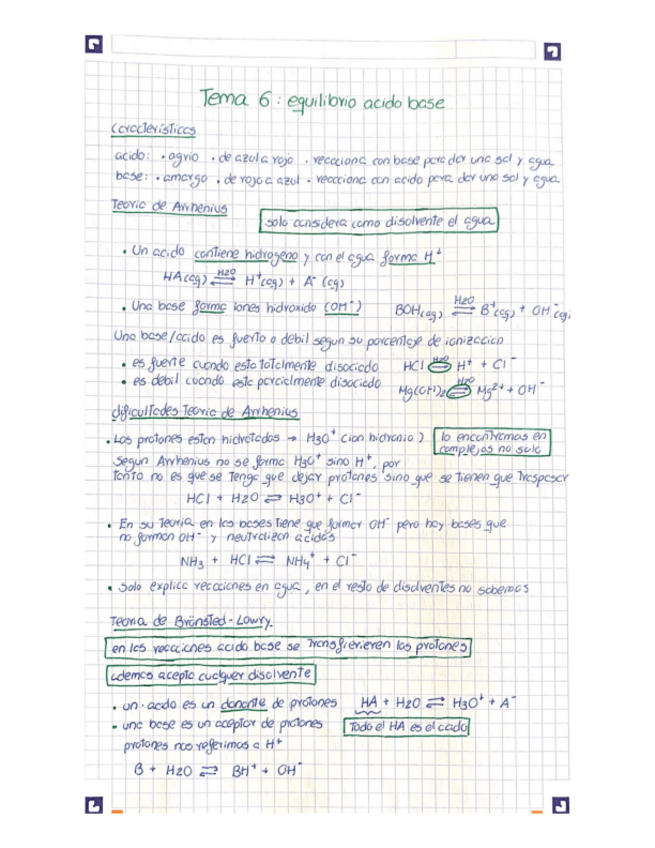 Tema 6: equilibrio acido base
Caracteristicas
acido: • agrio • de azul a rojo • reacciona con base para dar una sal y agua
base: • amargo • de rojo a azul • reacciona con acido para dar una sal y agua
Teoria de Arrhenius
solo considera como disolvente el agua
• Un acido contiene hidrogeno y con el agua forma H⁺
HA(aq) ⇌ H2O H⁺(aq) + A⁻(aq)
• Una base forma iones hidroxido (OH⁻) BOH(aq) ⇌ H2O B⁺(aq) + OH⁻(aq)
Una base/acido es fuerte o debil segun su porcentaje de ionizacion
• es fuerte cuando esta totalmente disociado HCl ⇌ H2O H⁺ + Cl⁻
• es debil cuando esta parcialmente disociado Mg(OH)2 ⇌ H2O Mg²⁺ + OH⁻
dificultades Teoria de Arrhenius
• Los protones estan hidratados → H3O⁺ (ion hidronio) lo encontramos en
complejos no solo
Segun Arrhenius no se forma H3O⁺ sino H⁺, por
tanto no es que se tenga que dejar protones sino que se tienen que traspasar
HCl + H2O ⇌ H3O⁺ + Cl⁻
• En su teoria en las bases tiene que formar OH⁻ pero hay bases que
no forman OH⁻ y neutralizan acidos
NH3 + HCl ⇌ NH4⁺ + Cl⁻
• Solo explica reacciones en agua, en el resto de disolventes no sabemos
Teoria de Brönsted-Lowry
en las reacciones acido base se transfierieren los protones
ademas acepta cualquier disolvente
• un acido es un donante de protones HA + H2O ⇌ H3O⁺ + A⁻
• una base es un aceptor de protones Todo el HA es el acido
protones nos referimos a H⁺
B + H2O ⇌ BH⁺ + OH⁻